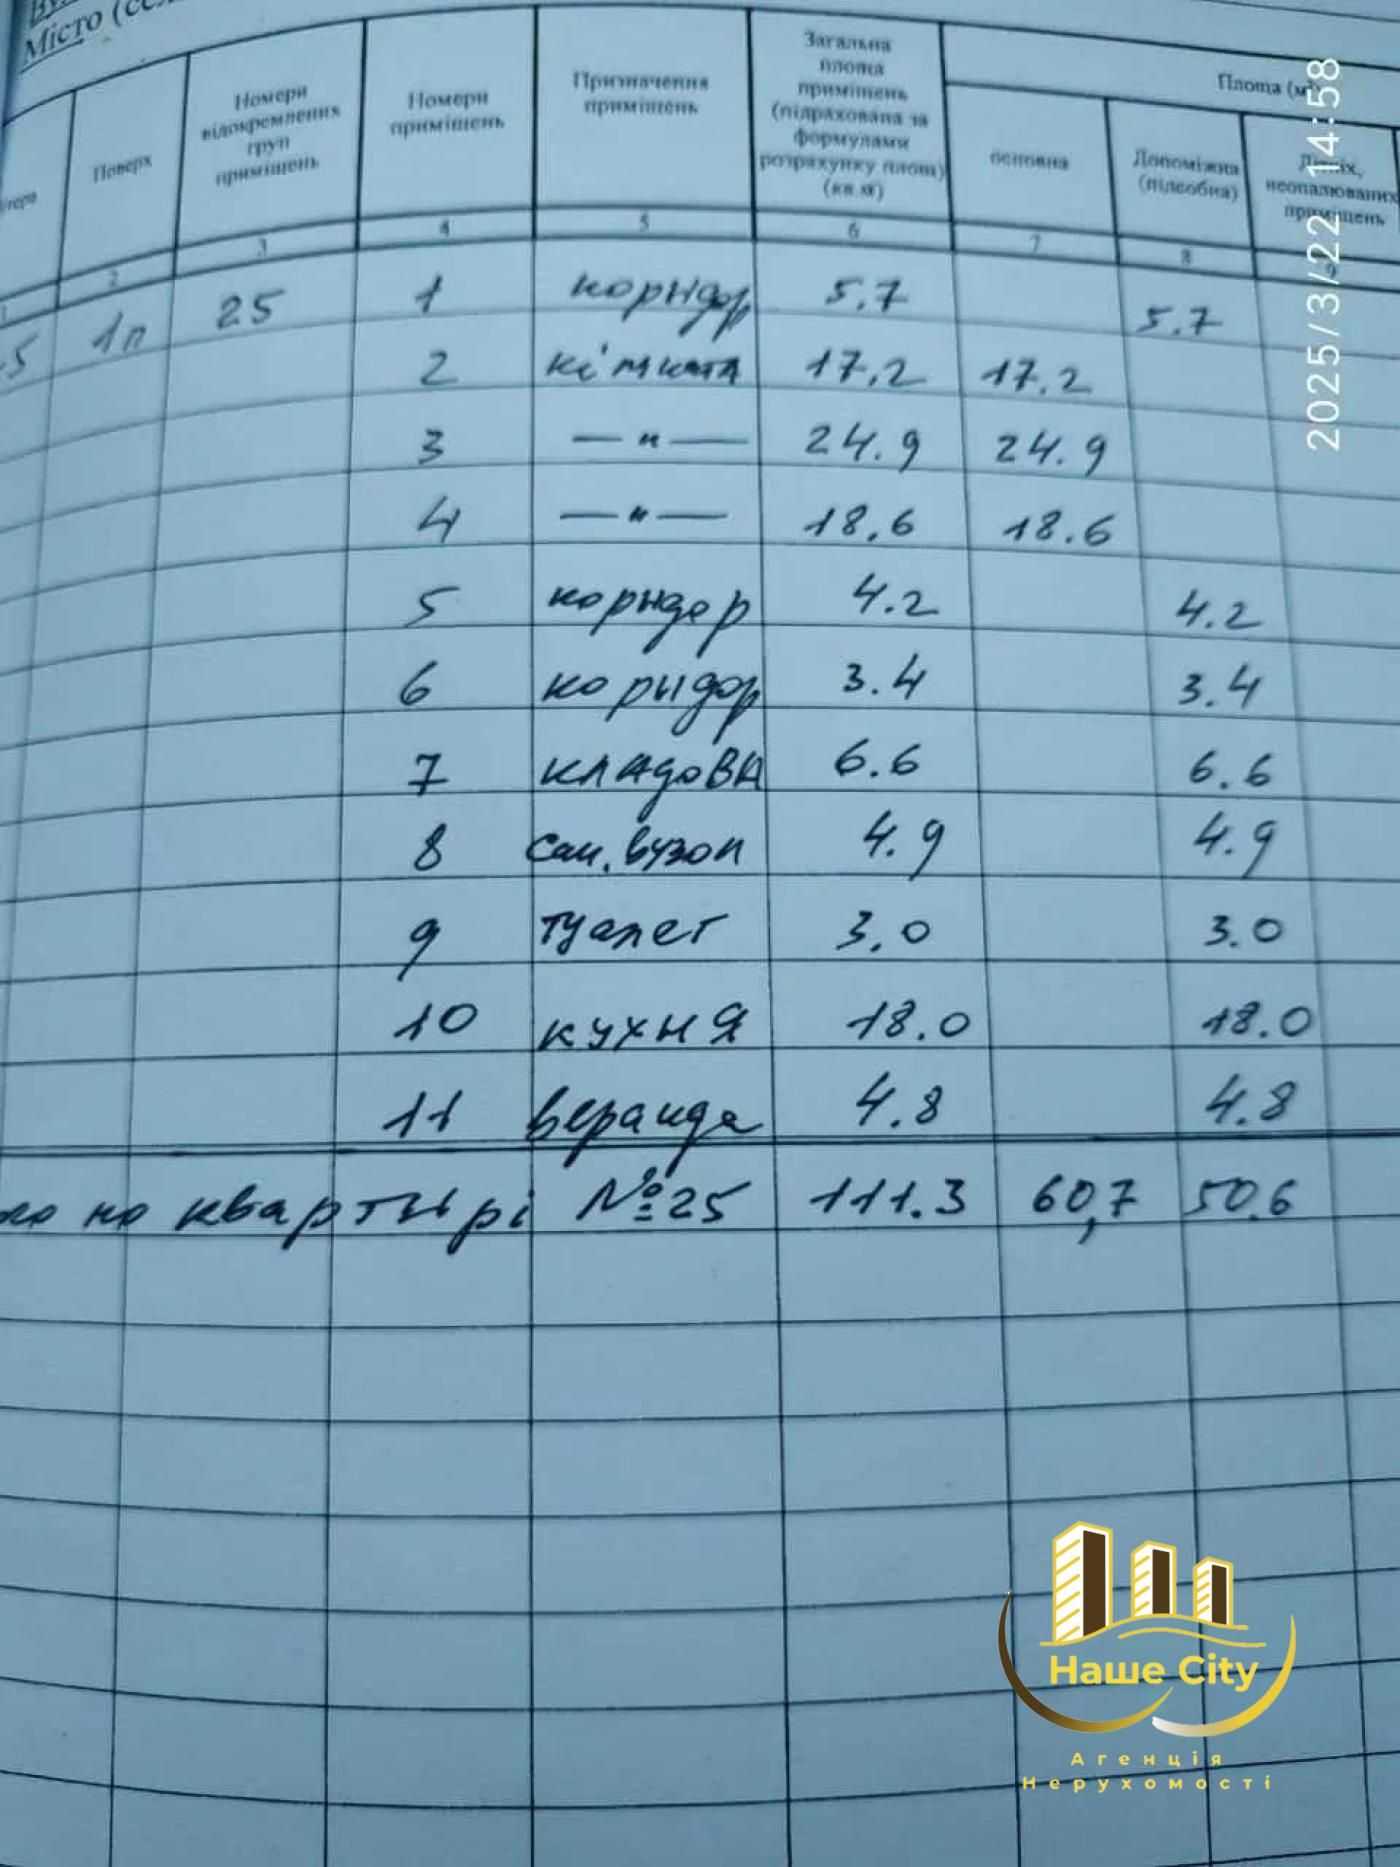 Місто (се
Поверх
Номери відокремлених груп приміщень
Номери приміщень
Призначення приміщень
Загальна площа приміщень (підрахована за формулами розрахунку площ) (кв.м)
Площа (м²)
основна
Допоміжна (підсобна)
неопалюваних приміщень
2 3 4 5 6 7 8 9
1п 25 1 корыдор 5.7 5.7
2 кімната 17.2 17.2
3 —"— 24.9 24.9
4 —"— 18.6 18.6
5 корыдор 4.2 4.2
6 корыдор 3.4 3.4
7 кладова 6.6 6.6
8 сан.вузол 4.9 4.9
9 туалет 3.0 3.0
10 кухня 18.0 18.0
11 веранда 4.8 4.8
по квартырі №25 111.3 60,7 50.6
2025/3/22 14:58
Наше City
Агенція
Нерухомості